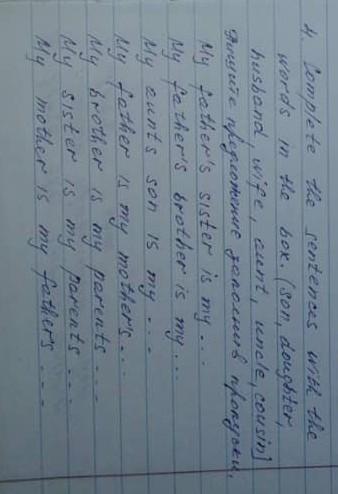 4. Complete the sentences with the
words in the box. (son, doughter,
husband, wife, aunt, uncle, cousin)
предложение заполнив пропуски.
My father's sister is my ...
My father's brother is my ...
My aunts son is my ...
My father is my mothers ...
My brother is my parents ...
My sister is my parents ...
My mother is my father's ...